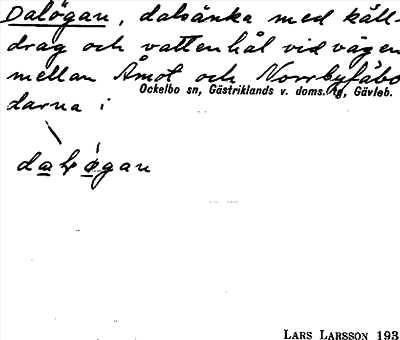 Dalögan, dalsänka med käll-
drag och vattenhål vid vägen
mellan Åmot och Norrbyfäbo
darna i
Ockelbo sn, Gästriklands v. doms. tg, Gävleb.
LARS LARSSON 193